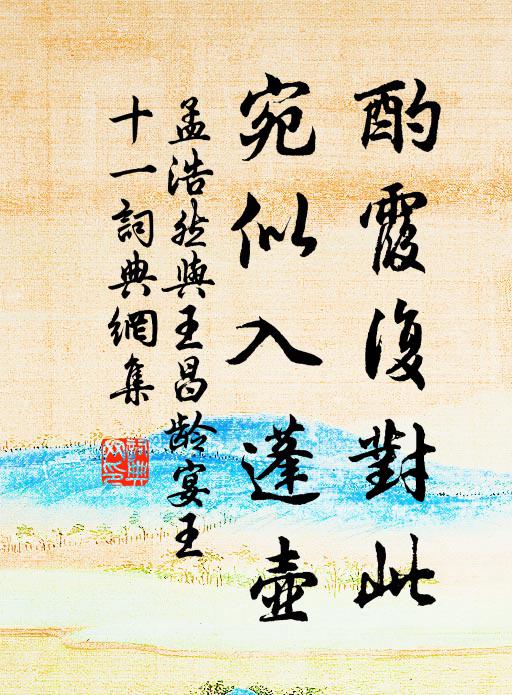 酌霞復對此
宛似入蓬壺
孟浩然與王昌齡宴王
十一詞典網集